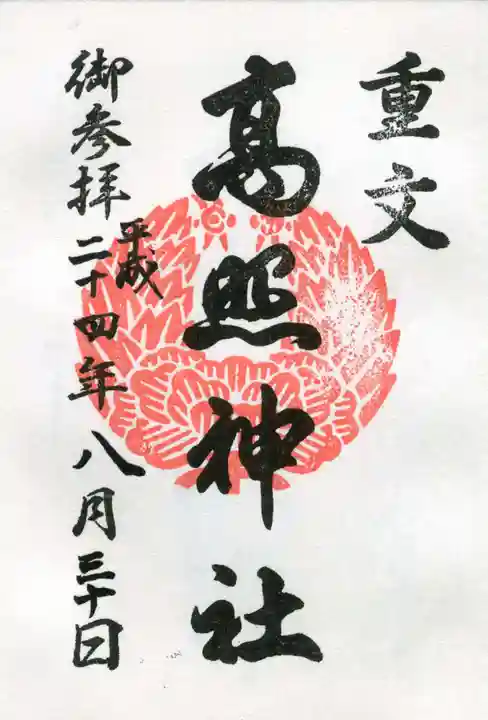 重文
高照神社
御参拝
平成
二十四年八月三十日